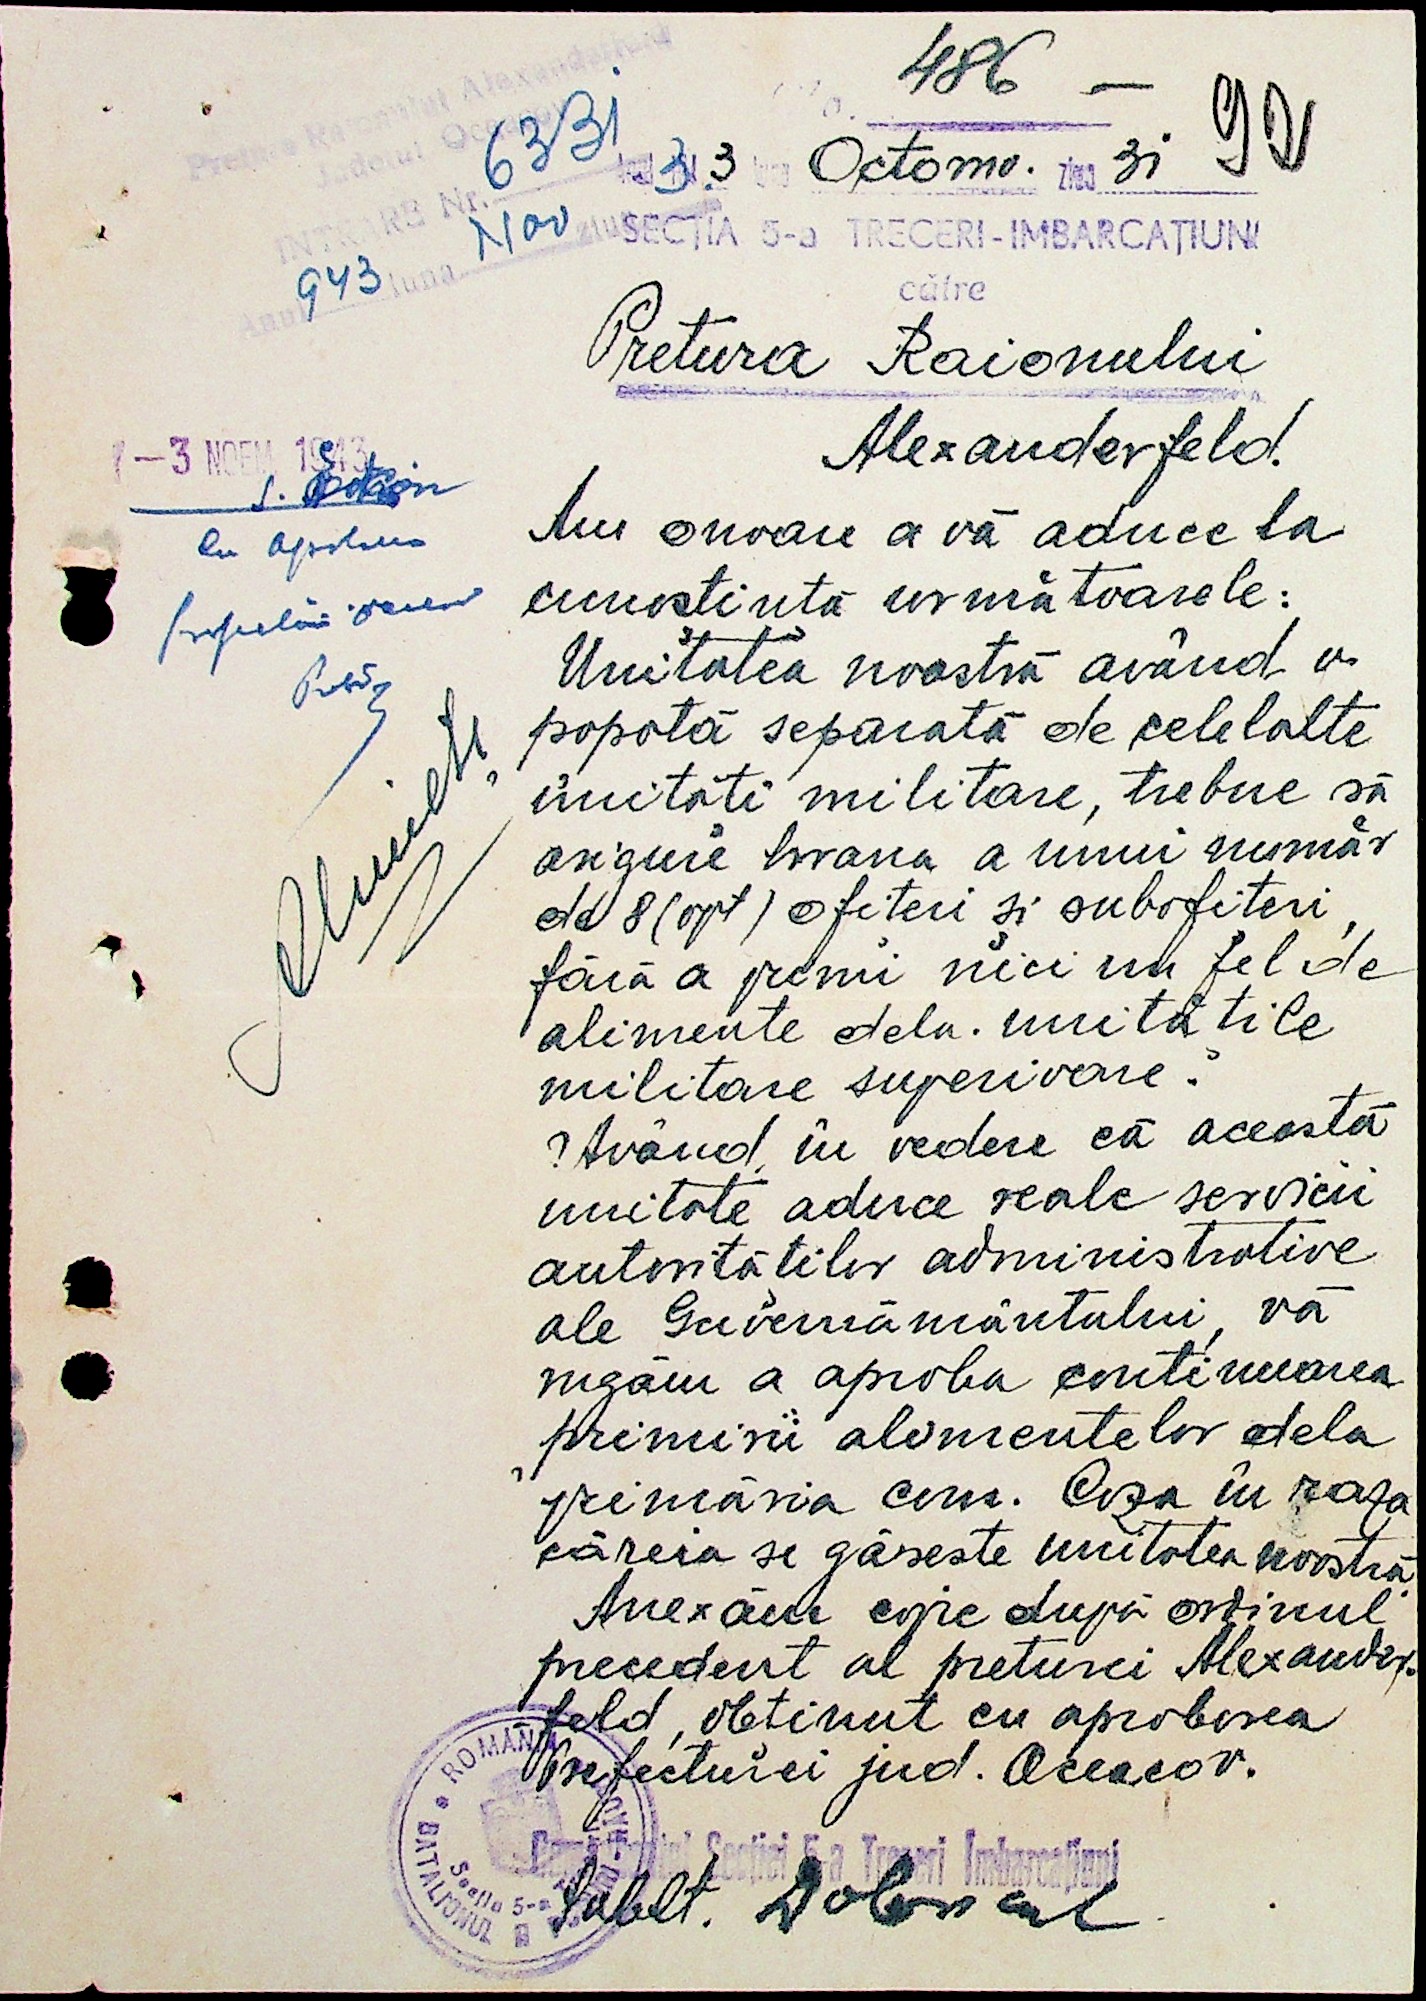 486 —
92
Pretura Raionului Alexanderfeld
Județul Oceacov
INTRARE Nr. 6331
Anul 943 luna Nov ziua
No.
3.3 Octomv. ziua 31
SECȚIA 5-a TRECERI-IMBARCAȚIUNI
către
Pretura Raionului
Alexanderfeld.
-3 NOEM 1943
Cu aprobarea
Am onoare a vă aduce la
cunostintă următoarele:
Unitatea noastră având o
popotă separată de celelalte
unităti militare, trebue să
asigure hrana a unui număr
de 8 (opt) ofiteri și subofiteri,
fără a primi nici un fel de
alimente dela unitățile
militare superioare.
Având în vedere că această
unitate aduce reale servicii
autoritătilor administrative
ale Guvernământului, vă
rugăm a aproba continuarea
primirii alimentelor dela
primăria com. Coza în raza
căreia se găseste unitatea noastră.
Anexăm copie după ordinul
precedent al preturei Alexander-
feld, obtinut cu aprobarea
Prefecturei jud. Oceacov.
Comandantul Secției 5-a Treceri Imbarcațiuni
Sublt.
ROMÂNIA
BATALIONUL
Secția 5-a